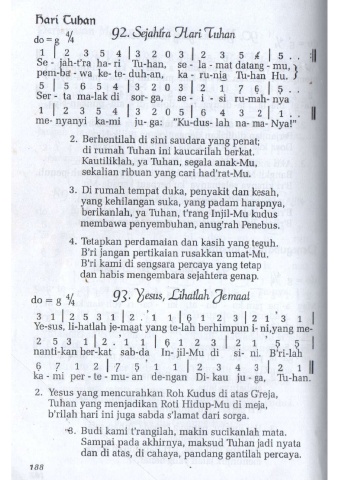 Hari Tuhan
92. Sejahtra Hari Tuhan
do = g 4/4
1 | 2 3 5 4 | 3 2 0 3 | 2 3 5 4 | 5 . .
Se - jah-t'ra ha - ri Tu-han, se - la - mat datang - mu,
pem-ba - wa ke-te - duh-an, ka - ru-nia Tuhan Hu.
5 | 5 6 5 4 | 3 2 0 3 | 2 1 7 6 | 5 . .
Ser - ta malak di sor- ga, se - i - si rumah-nya
1 | 2 3 5 4 | 3 2 0 5 | 6 4 3 2 | 1 . .
me - nyanyi ka-mi ju - ga: "Ku-dus-lah na-ma - Nya!"
2. Berhentilah di sini saudara yang penat;
di rumah Tuhan ini kaucarilah berkat.
Kautiliklah, ya Tuhan, segala anak-Mu,
sekalian ribuan yang cari had'rat-Mu.
3. Di rumah tempat duka, penyakit dan kesah,
yang kehilangan suka, yang padam harapnya,
berikanlah, ya Tuhan, t'rang Injil-Mu kudus
membawa penyembuhan, anug'rah Penebus.
4. Tetapkan perdamaian dan kasih yang teguh.
B'ri jangan pertikaian rusakkan umat-Mu.
B'ri kami di sengsara percaya yang tetap
dan habis mengembara sejahtera genap.
93. Yesus, Lihatlah Jemaat
do = g 4/4
3 1 | 2 5 3 1 | 2 . 1 1 | 6 1 2 3 | 2 1 3 1 |
Ye-sus, li-hatlah je-maat yang te-lah berhimpun i - ni,yang me-
2 5 3 1 | 2 . 1 1 | 6 1 2 3 | 2 1 5 5 |
nanti-kan ber-kat sab-da In-jil-Mu di si- ni. B'ri-lah
6 7 1 2 | 7 5 1 1 | 2 3 4 3 | 2 1
ka - mi per - te - mu- an de-ngan Di-kau ju - ga, Tu-han.
2. Yesus yang mencurahkan Roh Kudus di atas G'reja,
Tuhan yang menjadikan Roti Hidup-Mu di meja,
b'rilah hari ini juga sabda s'lamat dari sorga.
3. Budi kami t'rangilah, makin sucikanlah mata.
Sampai pada akhirnya, maksud Tuhan jadi nyata
dan di atas, di cahaya, pandang gantilah percaya.
188